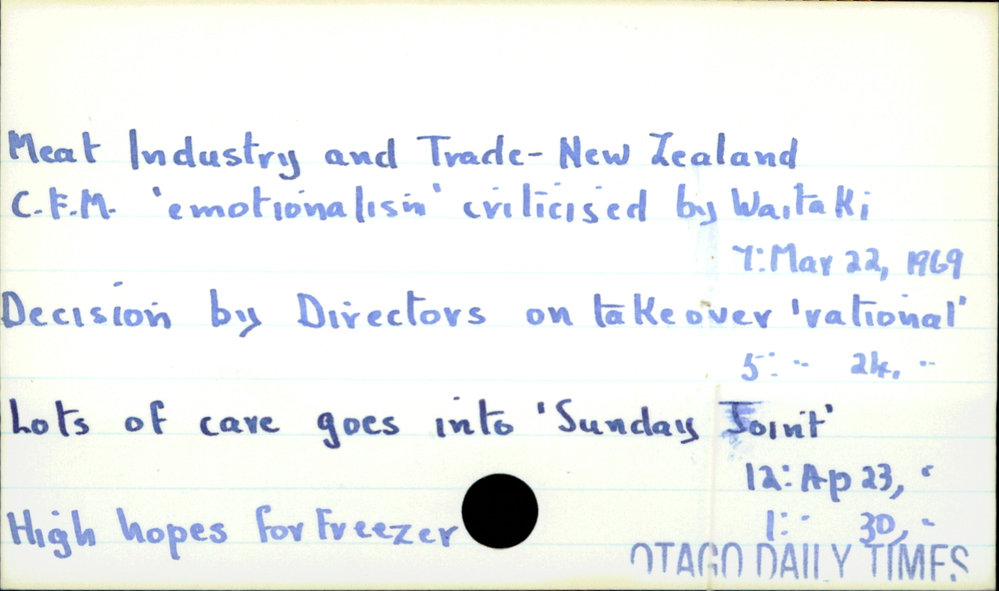 Meat Industry and Trade- New Zealand
C.F.M. 'emotionalism' criticised by Waitaki
7: Mar 22, 1969
Decision by Directors on takeover 'rational'
5: " 24, "
Lots of care goes into 'Sunday Joint'
12: Ap 23, "
High hopes for Freezer
1: " 30, "
OTAGO DAILY TIMES